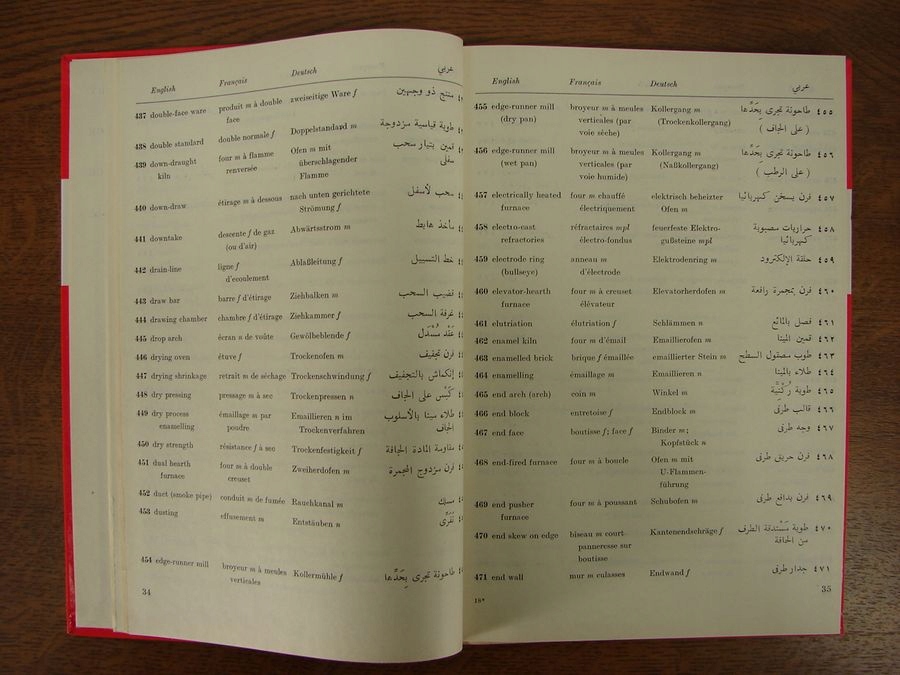 English Français Deutsch عربي
437 double-face ware produit m à double zweiseitige Ware f منتج ذو وجهين
face
438 double standard double normale f Doppelstandard m طوبة قياسية مزدوجة
439 down-draught four m à flamme Ofen m mit قمين بتيار سحب
kiln renversée überschlagender سفلى
Flamme
440 down-draw étirage m à dessous nach unten gerichtete سحب لأسفل
Strömung f
441 downtake descente f de gaz Abwärtsstrom m مأخذ هابط
(ou d'air)
442 drain-line ligne f Ablaßleitung f خط التسييل
d'ecoulement
443 draw bar barre f d'étirage Ziehbalken m قضيب السحب
444 drawing chamber chambre f d'étirage Ziehkammer f غرفة السحب
445 drop arch écran m de voûte Gewölbeblende f عقد مسدل
446 drying oven étuve f Trockenofen m فرن تجفيف
447 drying shrinkage retrait m de séchage Trockenschwindung f إنكماش بالتجفيف
448 dry pressing pressage m à sec Trockenpressen n كبس على الجاف
449 dry process émaillage m par Emaillieren n im طلاء مينا بالأسلوب
enamelling poudre Trockenverfahren الجاف
450 dry strength résistance f à sec Trockenfestigkeit f مقاومة المادة الجافة
451 dual hearth four m à double Zweiherdofen m فرن مزدوج المجمرة
furnace creuset
452 duct (smoke pipe) conduit m de fumée Rauchkanal m مسلك
453 dusting effusement m Entstäuben n
454 edge-runner mill broyeur m à meules Kollermühle f طاحونة تجرى بحدها
verticales
34
English Français Deutsch عربي
455 edge-runner mill broyeur m à meules Kollergang m طاحونة تجرى بحدها ٤٥٥
(dry pan) verticales (par (Trockenkollergang) (على الجاف)
voie sèche)
456 edge-runner mill broyeur m à meules Kollergang m طاحونة تجرى بحدها ٤٥٦
(wet pan) verticales (par (Naßkollergang) (على الرطب)
voie humide)
457 electrically heated four m chauffé elektrisch beheizter فرن يسخن كهربائيا ٤٥٧
furnace électriquement Ofen m
458 electro-cast réfractaires mpl feuerfeste Elektro- حراريات مصبوبة ٤٥٨
refractories électro-fondus gußsteine mpl كهربائيا
459 electrode ring anneau m Elektrodenring m حلقة الإلكترود ٤٥٩
(bullseye) d'électrode
460 elevator-hearth four m à creuset Elevatorherdofen m فرن بمجمرة رافعة ٤٦٠
furnace élévateur
461 elutriation élutriation f Schlämmen n فصل بالمائع ٤٦١
462 enamel kiln four m d'émail Emaillierofen m قمين المينا ٤٦٢
463 enamelled brick brique f émaillée emaillierter Stein m طوب مصقول السطح ٤٦٣
464 enamelling émaillage m Emaillieren n طلاء بالمينا ٤٦٤
465 end arch (arch) coin m Winkel m طوبة ركنية ٤٦٥
466 end block entretoise f Endblock m قالب طرفى ٤٦٦
467 end face boutisse f; face f Binder m; وجه طرفى ٤٦٧
Kopfstück n
468 end-fired furnace four m à boucle Ofen m mit فرن حريق طرفى ٤٦٨
U-Flammen-
führung
469 end pusher four m à poussant Schubofen m فرن بدافع طرفى ٤٦٩
furnace
470 end skew on edge biseau m court Kantenendschräge f طوبة مستدقة الطرف ٤٧٠
panneresse sur من الحافة
boutisse
471 end wall mur m culasses Endwand f جدار طرفى ٤٧١
18*
35